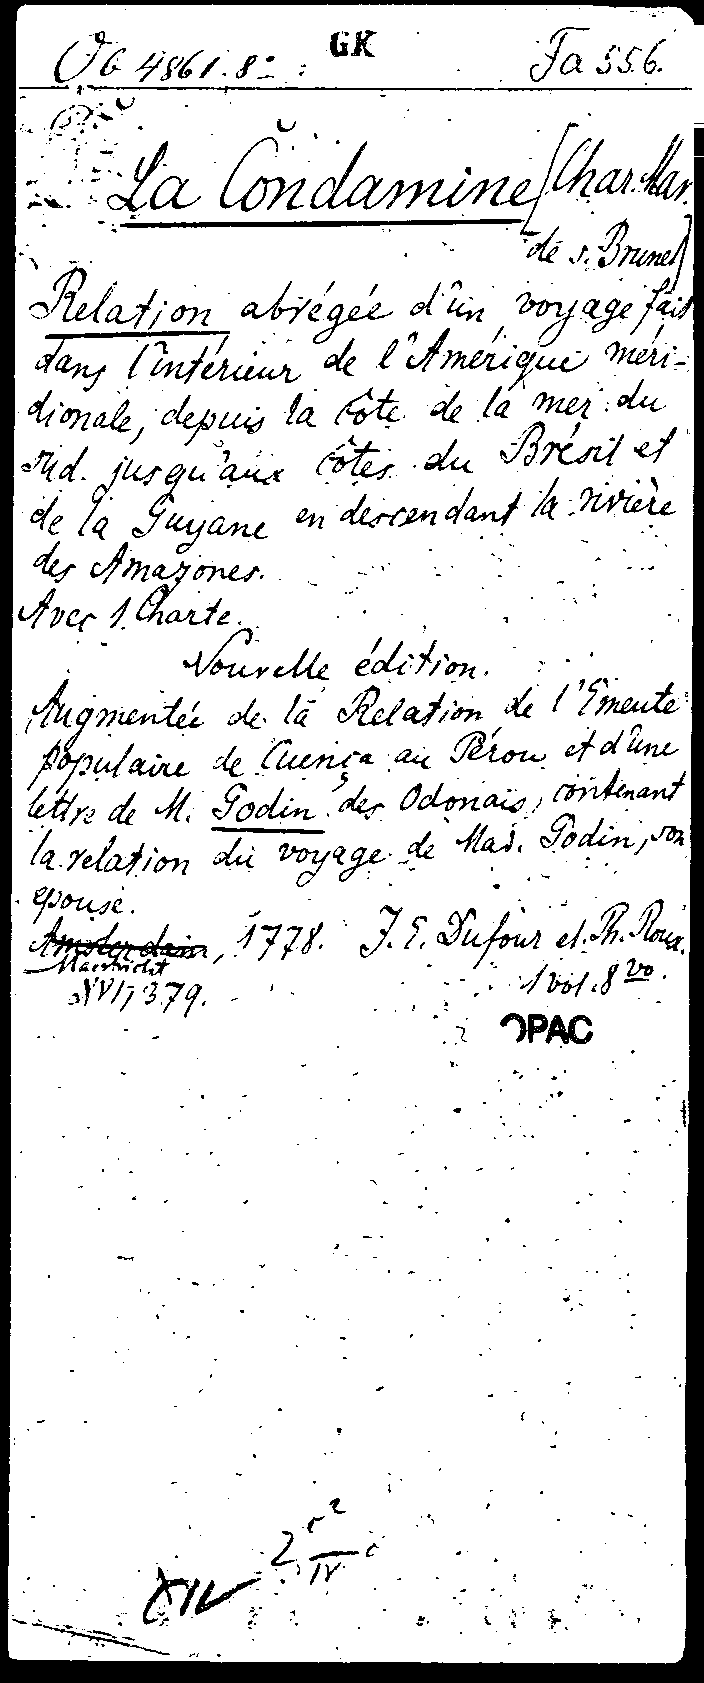 Ob 4861. 8° GK Fa 556.
La Condamine [Char. Mar.
de s. Brunet]
Relation abrégée d'un voyage fait
dans l'intérieur de l'Amérique méri-
dionale, depuis la côte de la mer du
sud. jusqu'aux côtes du Brésil et
de la Guyane en descendant la rivière
des Amazones.
Avec 1. Charte.
Nouvelle édition.
Augmentée de la Relation de l'Emeute
populaire de Cuença au Pérou et d'une
lettre de M. Godin des Odonais, contenant
la relation du voyage de Mad. Godin, son
epouse.
Amsterdam, 1778. J. E. Dufour et Ph. Roux.
Maestricht
XVII, 379. 1 vol. 8vo.
OPAC